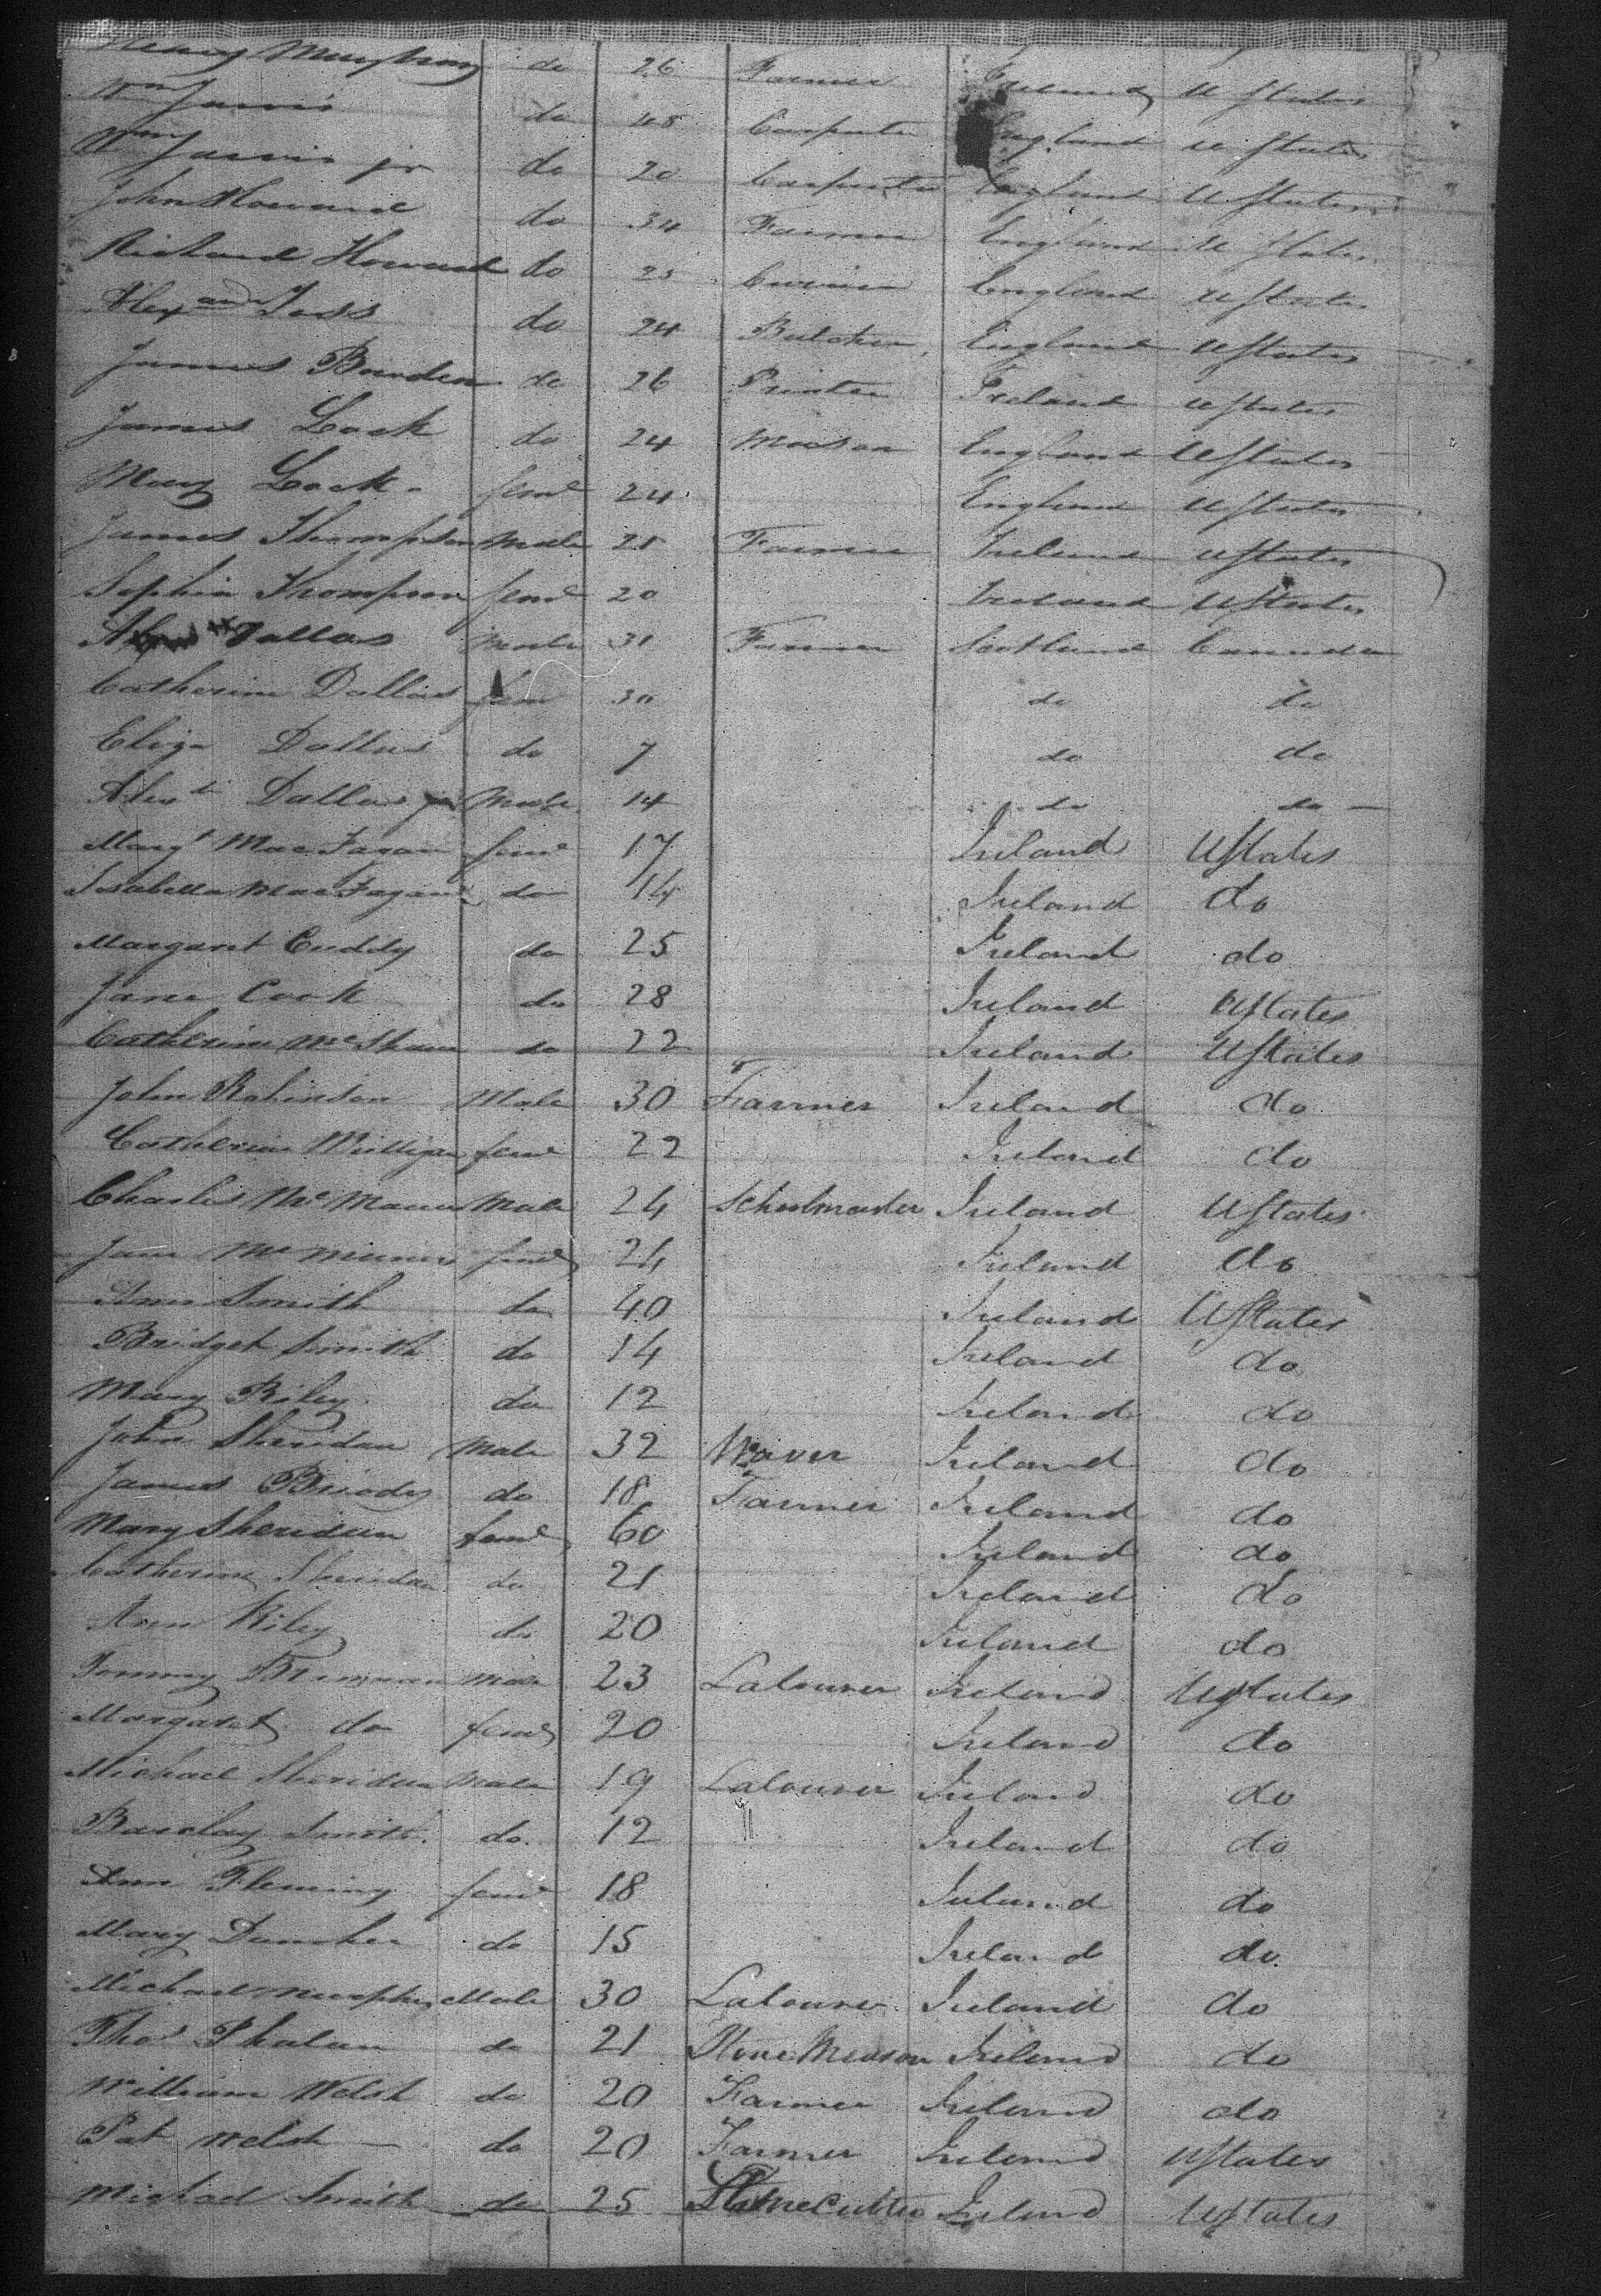 Henry do 26 Farmer Ireland U States
Wm Jarvis do 45 Carpenter England U States
Wm Jarvis jr do 20 Carpenter England U States
John Howard do 34 Farmer England U States
Richard Howard do 25 Currier England U States
Alexander do 24 Butcher England U States
James Bowden do 26 Printer Ireland U States
James Lock do 24 Mason England U States
Mary Lock feml 24 England U States
James Thompson Male 21 Farmer Ireland U States
Sophia Thompson feml 20 Ireland U States
Dallas Male 31 Farmer Scotland Canada
Catherine Dallas fem 30 do do
Eliza Dallas do 7 do do
Alexr Dallas jr Male 14 do do
Margt MacFagan feml 17 Ireland U States
Isabella MacFagan do 14 Ireland do
Margaret Cuddy do 25 Ireland do
Jane Cook do 28 Ireland U States
Catherine McShane do 22 Ireland U States
John Robinson Male 30 Farmer Ireland do
Catherine Milligan feml 22 Ireland do
Charles McManus Male 24 Schoolmaster Ireland U States
Jane McManus feml 24 Ireland do
Ann Smith do 40 Ireland U States
Bridget Smith do 14 Ireland do
Mary Riley do 12 Ireland do
John Sheridan Male 32 Weaver Ireland do
James Briody do 18 Farmer Ireland do
Mary Sheridan feml 60 Ireland do
Catherine Sheridan do 21 Ireland do
Ann Riley do 20 Ireland do
Tommy Male 23 Labourer Ireland U States
Margaret do feml 20 Ireland do
Michael Sheridan Male 19 Labourer Ireland do
Barclay Smith do 12 Ireland do
Ann Fleming feml 18 Ireland do
Mary do 15 Ireland do
Michael Murphy Male 30 Labourer Ireland do
Thos Phalan do 21 Stone Meason Ireland do
William Welsh do 20 Farmer Ireland do
Pat Welsh do 20 Farmer Ireland U States
Michael Smith do 25 Stone Cutter Ireland U States